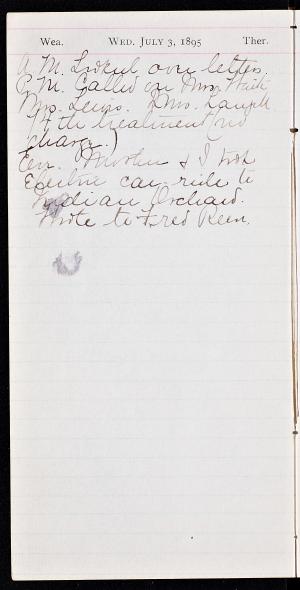 Wea. WED. JULY 3, 1895 Ther.
A.M. Looked over letters.
P.M. Called on Mrs. Waite
Mrs. Lewis. (Mrs.
4th treatment (no
charge.)
Eve. Mother & I took
Electric car ride to
Indian Orchard.
Wrote to Fred Keen.